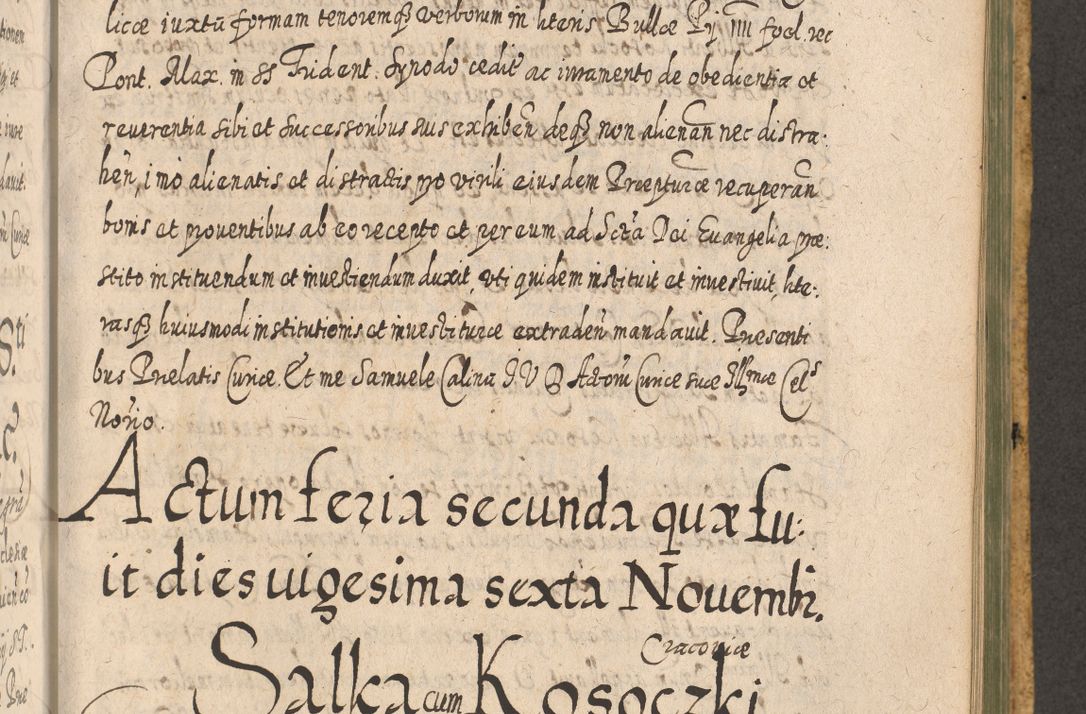 licæ iuxtā formam tenoremq̃ verborum in lteris Bullæ Pÿ IIII fœl. rec
Pont. Max. in SS Trident. Synodo cedit ac iuramento de obedientia et
reuerentia sibi et successoribus suis exhiben̄ deq̃ non alienan̄ nec distra:
hen̄, imò alienatis et distractis pro virili eiusdem Præpturæ recuperan̄
bonis et prouentibus ab eo recepto et per eum ad Sctā Dei Euangelia præ:
stito instituendum et inuestiendum duxit, vti quidem instituit et inuestiuit, lte:
rasq̃ huiusmodi institutionis et inuestituræ extraden̄ mandauit. Presenti
bus Prælatis Curiæ. Et me Samuele Calina I. V. D Actorū Curiæ suæ Illmæ Cels
Norio.
Actum feria secunda quæ fu:
it dies uigesima sexta Nouembr.
Cracouiæ
Salka cum Kosoczki